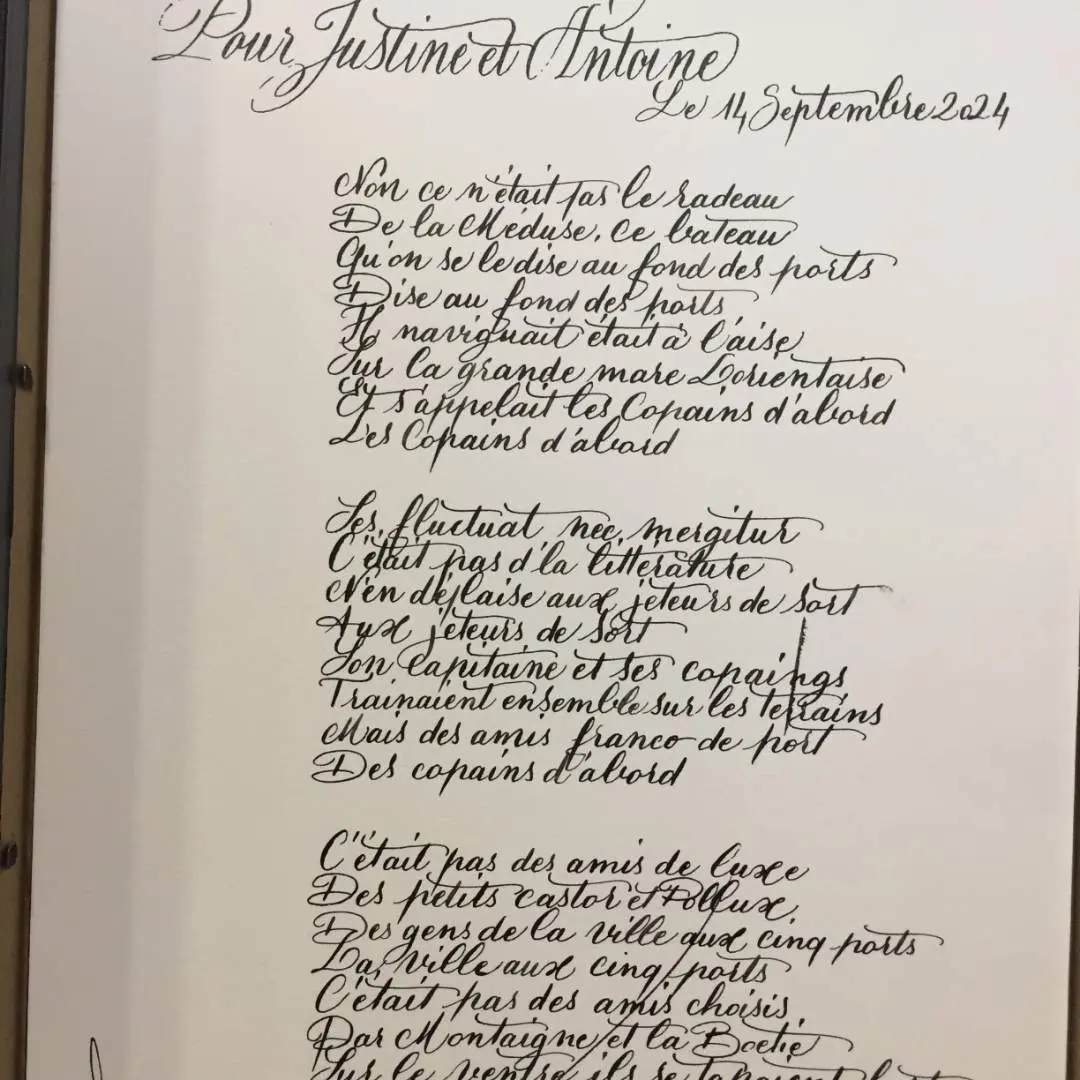 Pour Justine et Antoine
Le 14 Septembre 2024
Non ce n'était pas le radeau
De la Méduse, ce bateau
Qu'on se le dise au fond des ports
Dise au fond des ports,
Il naviguait était à l'aise
Sur la grande mare Lorientaise
Et s'appelait les Copains d'abord
Les Copains d'abord
Ses, fluctuat nec, mergitur
C'était pas d'la littérature
N'en déplaise aux jeteurs de sort
Aux jeteurs de sort
Son capitaine et ses copaings
Trainaient ensemble sur les terrains
Mais des amis franco de port
Des copains d'abord
C'était pas des amis de luxe
Des petits castor et Pollux,
Des gens de la ville aux cinq ports
La, ville aux cinq ports
C'était pas des amis choisis,
Par Montaigne et la Boetie
Sur le ventre ils se tapaient